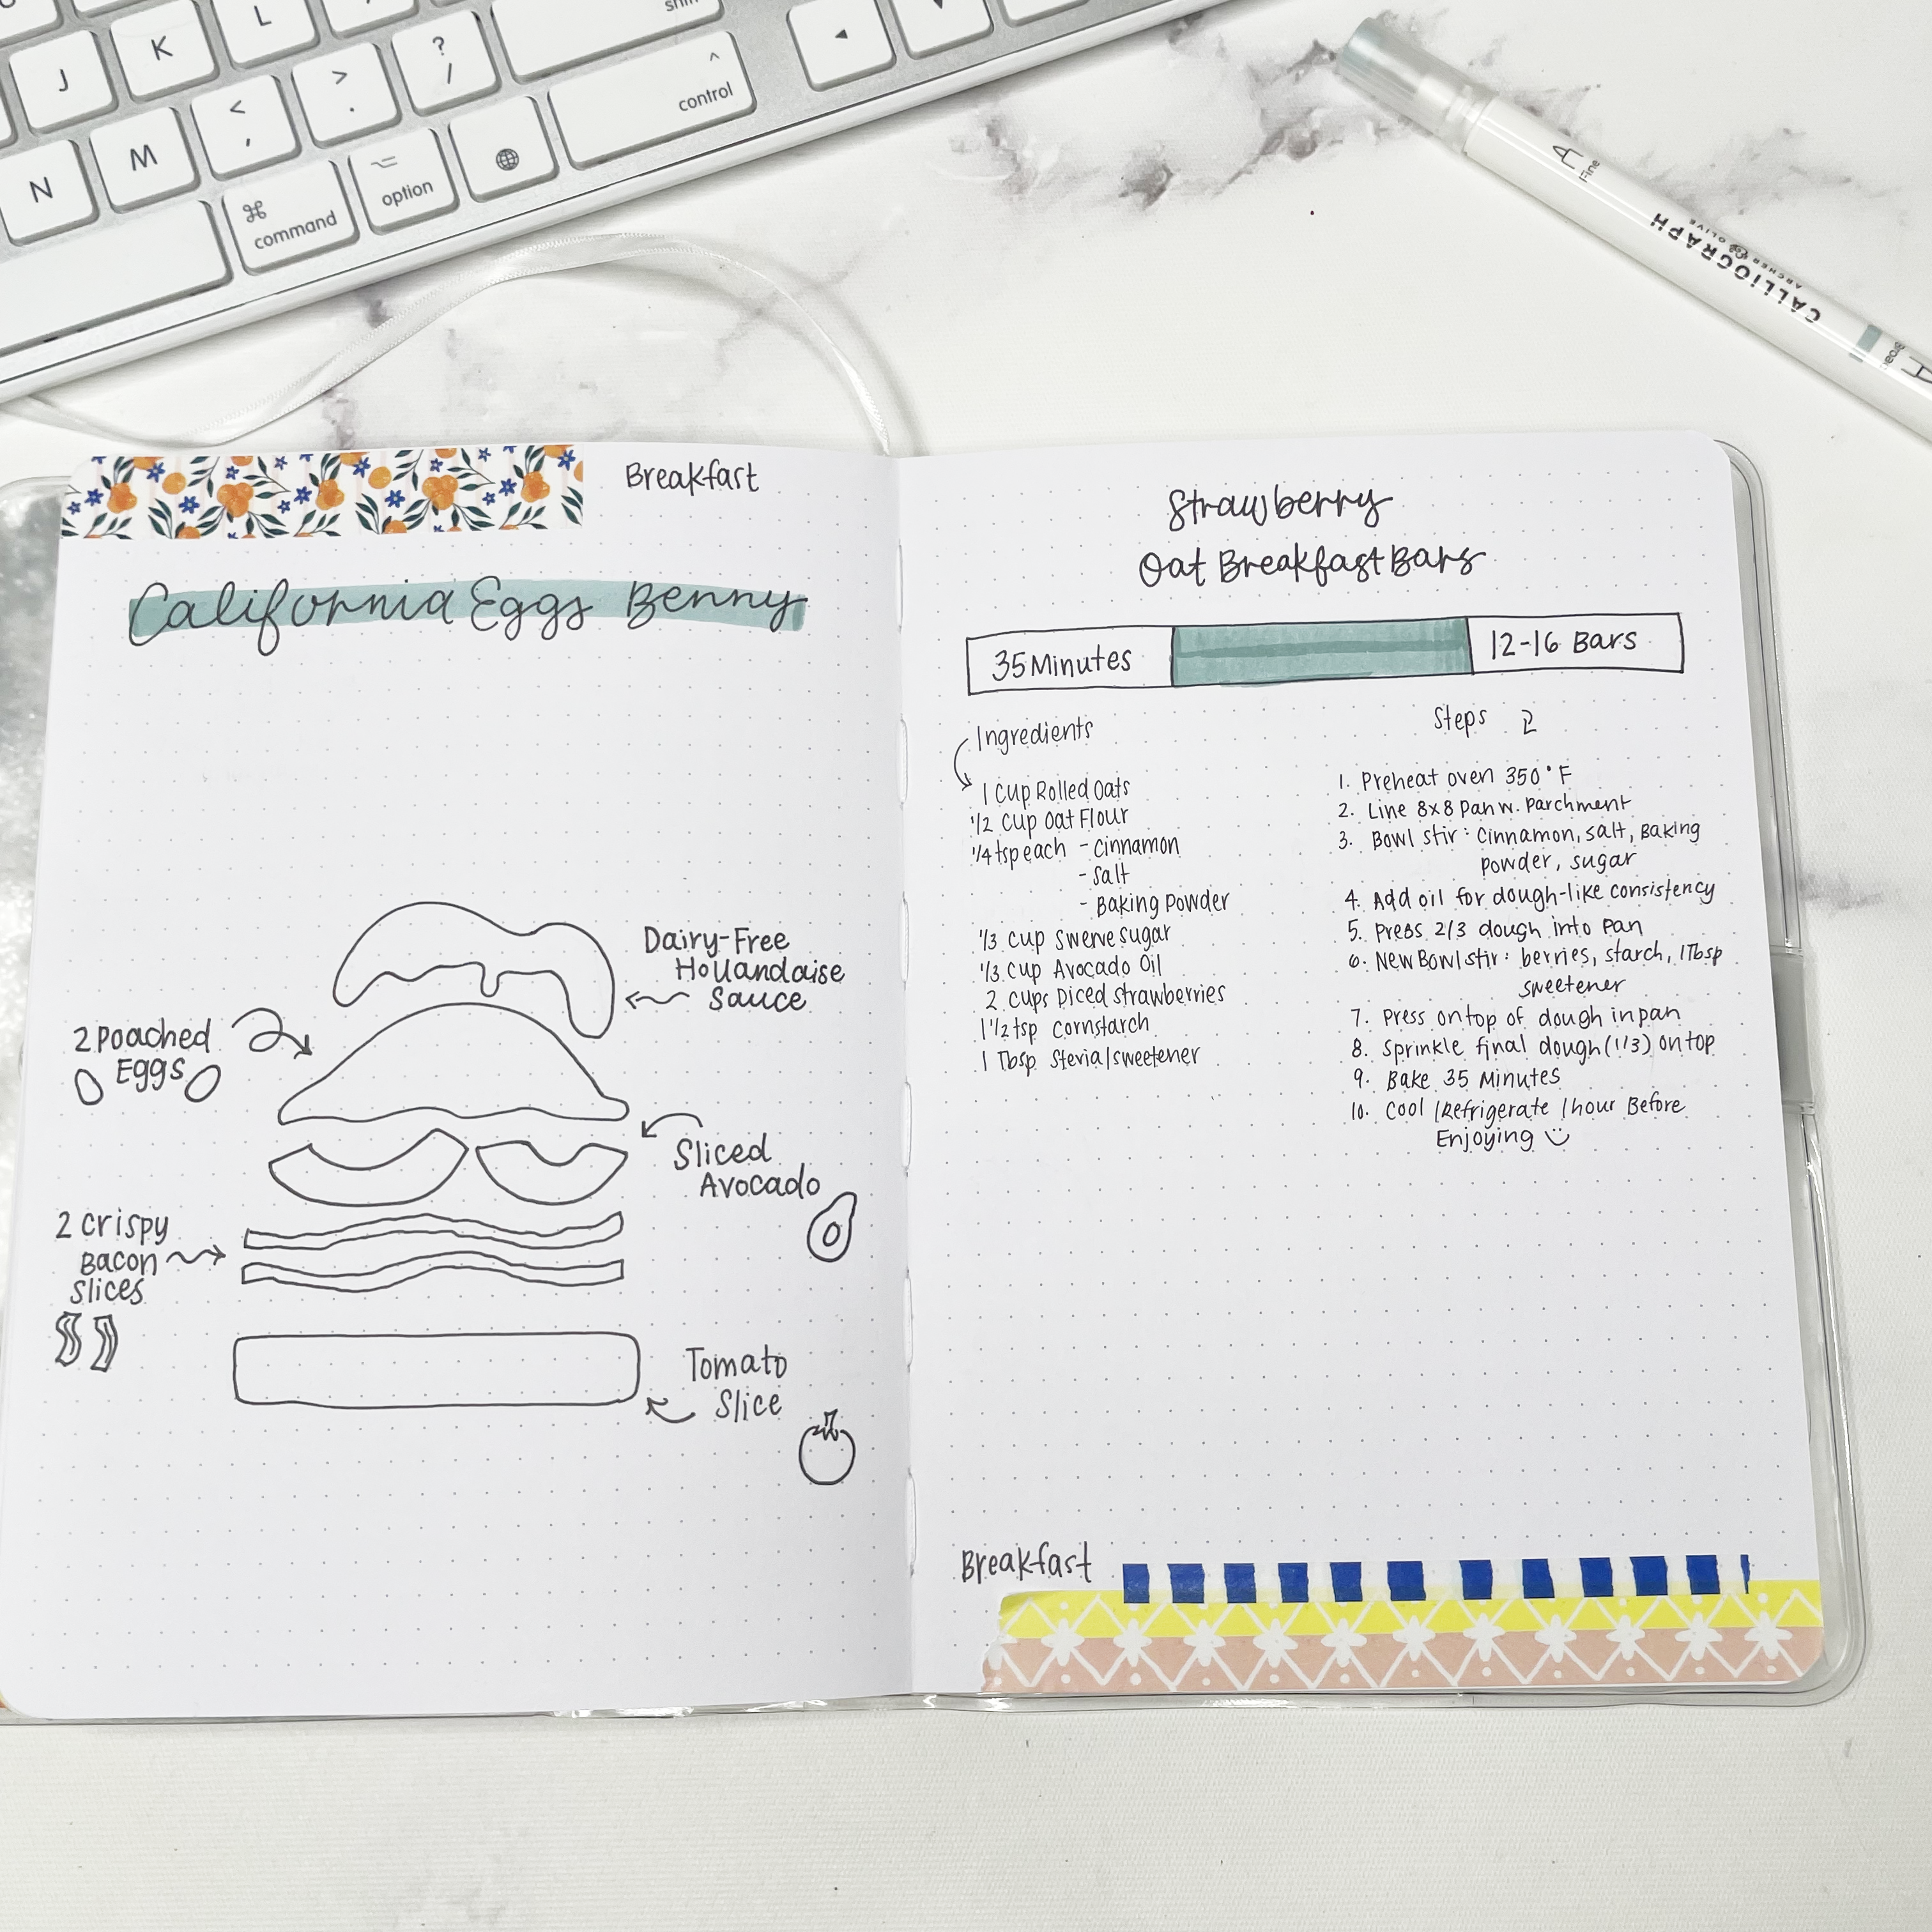 L
shift
J
K
< ,
> .
? /
^
control
◄
▼
N
M
⌘
command
⌥
option
A
Fine
CALLIOGRAPH
ARCHER & OLIVE
Breakfast
California Eggs Benny
Dairy-Free
Hollandaise
Sauce
2 Poached
Eggs
Sliced
Avocado
2 Crispy
Bacon
Slices
Tomato
Slice
Strawberry
Oat Breakfast Bars
35 Minutes
12-16 Bars
Ingredients
1 Cup Rolled Oats
1/2 Cup Oat Flour
1/4 tsp each - Cinnamon
- Salt
- Baking Powder
1/3 Cup Swerve sugar
1/3 Cup Avocado Oil
2 Cups Diced Strawberries
1 1/2 tsp Cornstarch
1 Tbsp Stevia/sweetener
Steps
1. Preheat oven 350°F
2. Line 8x8 Pan w. Parchment
3. Bowl stir: Cinnamon, salt, Baking
Powder, sugar
4. Add oil for dough-like consistency
5. Press 2/3 dough into Pan
6. New Bowl stir: berries, starch, 1 Tbsp
sweetener
7. Press on top of dough in pan
8. Sprinkle final dough (1/3) on top
9. Bake 35 Minutes
10. Cool/Refrigerate 1 hour Before
Enjoying
Breakfast